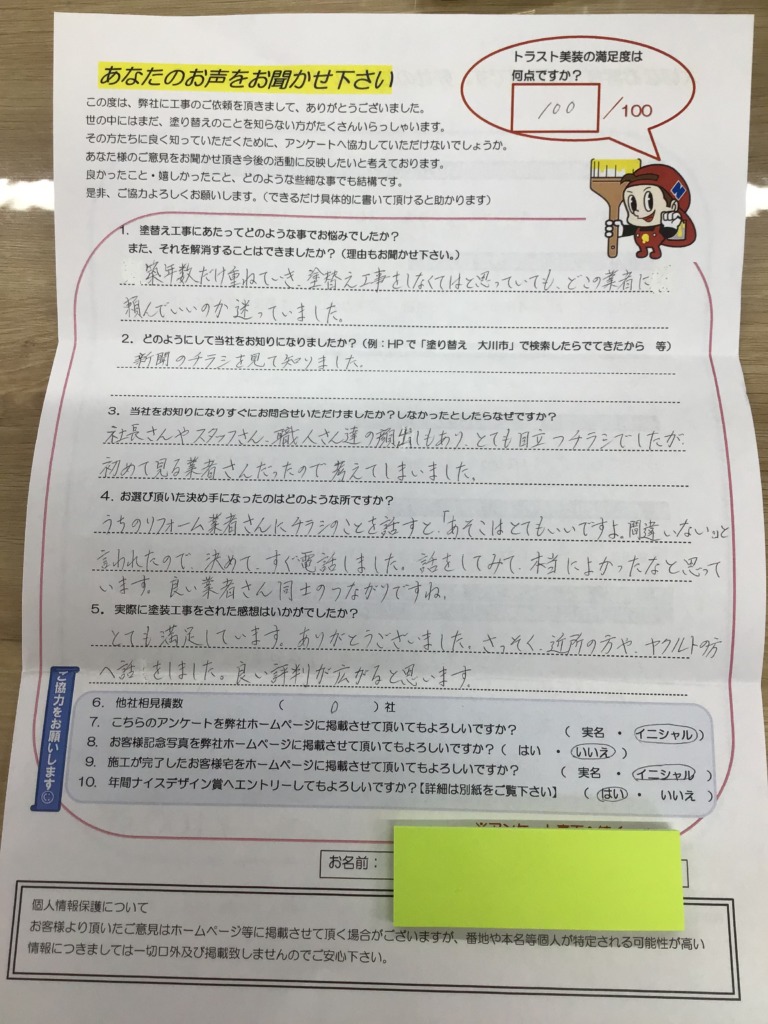 あなたのお声をお聞かせ下さい
トラスト美装の満足度は
何点ですか？
100 /100
この度は、弊社に工事のご依頼を頂きまして、ありがとうございました。
世の中にはまだ、塗り替えのことを知らない方がたくさんいらっしゃいます。
その方たちに良く知っていただくために、アンケートへ協力していただけないでしょうか。
あなた様のご意見をお聞かせ頂き今後の活動に反映したいと考えております。
良かったこと・嬉しかったこと、どのような些細な事でも結構です。
是非、ご協力よろしくお願いします。（できるだけ具体的に書いて頂けると助かります）
1. 塗替え工事にあたってどのような事でお悩みでしたか？
また、それを解消することはできましたか？（理由もお聞かせ下さい。）
築年数だけ重ねていき、塗替え工事をしなくてはと思っていても、どこの業者に
頼んでいいのか迷っていました。
2. どのようにして当社をお知りになりましたか？（例：HPで「塗り替え 大川市」で検索したらでてきたから 等）
新聞のチラシを見て知りました。
3. 当社をお知りになりすぐにお問合せいただけましたか？しなかったとしたらなぜですか？
社長さんやスタッフさん、職人さん達の顔出しもあり、とても目立つチラシでしたが、
初めて見る業者さんだったので考えてしまいました。
4. お選び頂いた決め手になったのはどのような所ですか？
うちのリフォーム業者さんにチラシのことを話すと、「あそこはとてもいいですよ。間違いない。」と
言われたので、決めて、すぐ電話しました。話をしてみて、本当によかったなと思って
います。良い業者さん同士のつながりですね。
5. 実際に塗装工事をされた感想はいかがでしたか？
とても満足しています。ありがとうございました。さっそく、近所の方や、ヤクルトの方
へ話をしました。良い評判が広がると思います。
ご協力をお願いします
6. 他社相見積数 （ 0 ）社
7. こちらのアンケートを弊社ホームページに掲載させて頂いてもよろしいですか？ （ 実名 ・ イニシャル ）
8. お客様記念写真を弊社ホームページに掲載させて頂いてもよろしいですか？（ はい ・ いいえ ）
9. 施工が完了したお客様宅をホームページに掲載させて頂いてもよろしいですか？ （ 実名 ・ イニシャル ）
10. 年間ナイスデザイン賞へエントリーしてもよろしいですか？【詳細は別紙をご覧下さい】 （ はい ・ いいえ ）
お名前：
個人情報保護について
お客様より頂いたご意見はホームページ等に掲載させて頂く場合がございますが、番地や本名等個人が特定される可能性が高い
情報につきましては一切口外及び掲載致しませんのでご安心下さい。